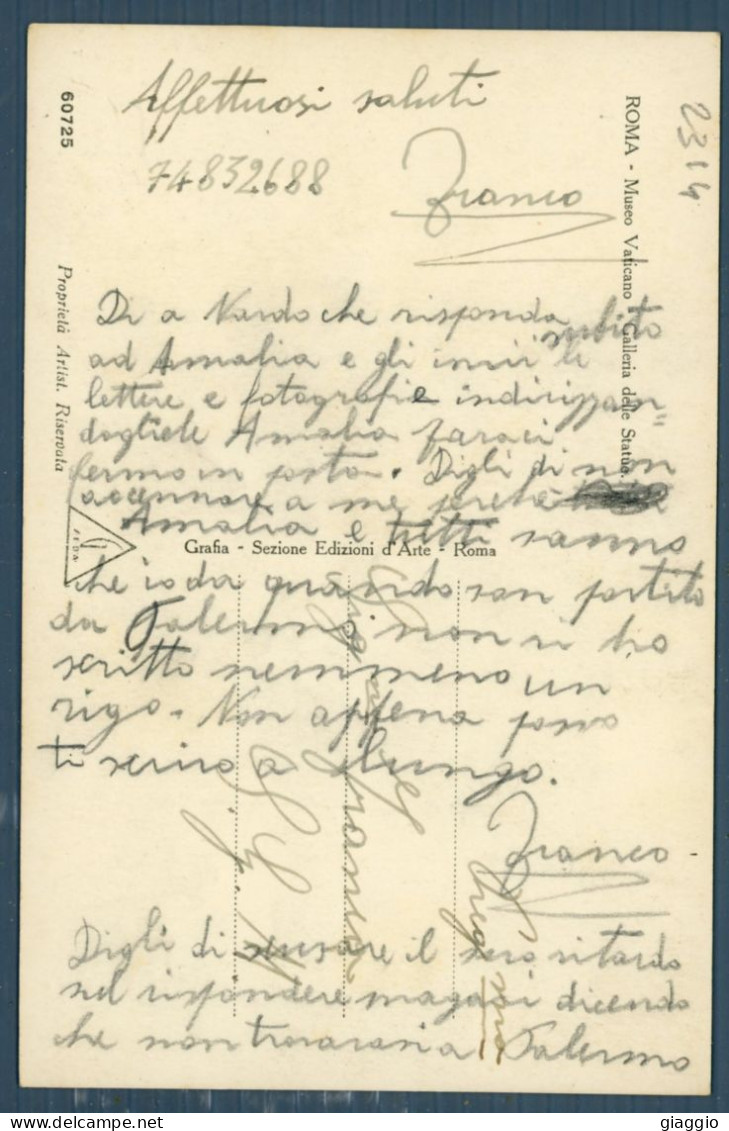 Affettuosi saluti
74832688
Franco
2314
60725
Proprietà Artist. Riservata
ROMA - Museo Vaticano - Galleria delle Statue.
Di a Nardo che risponda subito
ad Amalia e gli invii le
lettere e fotografie indirizzan"
dogliele Amalia Faraci
fermo in posta. Digli di non
accennare a me perché
Amalia e tutti sanno
Grafia - Sezione Edizioni d'Arte - Roma
che io da quando son partito
da Palermo non vi ho
scritto nemmeno un
rigo. Non appena posso
ti scrivo a lungo.
Franco
Digli di scusare il suo ritardo
nel rispondere magari dicendo
che non trovavasi a Palermo